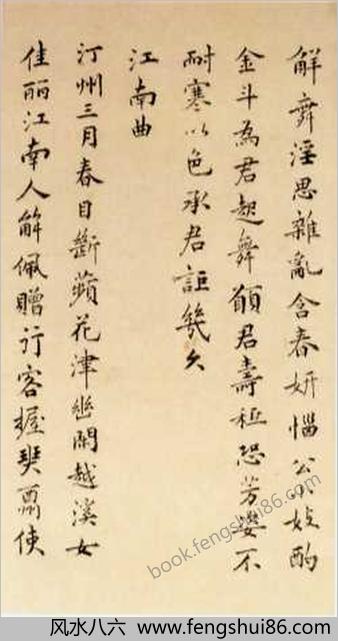 解舞淫思雜亂含春妍惱公妓酌
金斗為君起舞願君壽秪恐芳姿不
耐寒以色承君詎幾久
江南曲
汀州三月春目斷蘋花津幽閑越溪女
佳丽江南人解佩贈行客握
使
book.fengshui86.com
风水八六 www.fengshui86.com